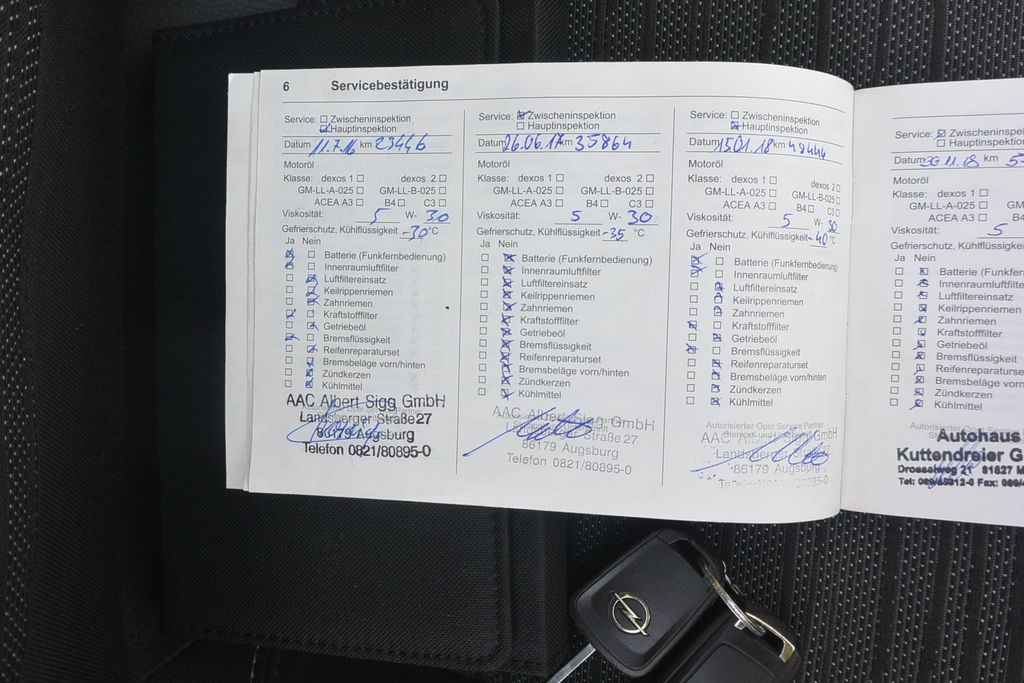 6 Servicebestätigung
Service: Zwischeninspektion
Hauptinspektion
Datum 11.7.16 km 23446
Motoröl
Klasse: dexos 1 dexos 2
GM-LL-A-025 GM-LL-B-025
ACEA A3 B4 C3
Viskosität: 5 W- 30
Gefrierschutz, Kühlflüssigkeit -30 °C
Ja Nein
Batterie (Funkfernbedienung)
Innenraumluftfilter
Luftfiltereinsatz
Keilrippenriemen
Zahnriemen
Kraftstofffilter
Getriebeöl
Bremsflüssigkeit
Reifenreparaturset
Bremsbeläge vorn/hinten
Zündkerzen
Kühlmittel
AAC Albert Sigg GmbH
Landsberger Straße 27
86179 Augsburg
Telefon 0821/80895-0
Service: Zwischeninspektion
Hauptinspektion
Datum 26.06.17 km 35864
Motoröl
Klasse: dexos 1 dexos 2
GM-LL-A-025 GM-LL-B-025
ACEA A3 B4 C3
Viskosität: 5 W- 30
Gefrierschutz, Kühlflüssigkeit -35 °C
Ja Nein
Batterie (Funkfernbedienung)
Innenraumluftfilter
Luftfiltereinsatz
Keilrippenriemen
Zahnriemen
Kraftstofffilter
Getriebeöl
Bremsflüssigkeit
Reifenreparaturset
Bremsbeläge vorn/hinten
Zündkerzen
Kühlmittel
AAC Albert Sigg GmbH
Landsberger Straße 27
86179 Augsburg
Telefon 0821/80895-0
Service: Zwischeninspektion
Hauptinspektion
Datum 15.01.18 km 48446
Motoröl
Klasse: dexos 1 dexos 2
GM-LL-A-025 GM-LL-B-025
ACEA A3 B4 C3
Viskosität: 5 W- 30
Gefrierschutz, Kühlflüssigkeit -40 °C
Ja Nein
Batterie (Funkfernbedienung)
Innenraumluftfilter
Luftfiltereinsatz
Keilrippenriemen
Zahnriemen
Kraftstofffilter
Getriebeöl
Bremsflüssigkeit
Reifenreparaturset
Bremsbeläge vorn/hinten
Zündkerzen
Kühlmittel
Autorisierter Opel Service Partner
Landsberger Straße
86179 Augsburg
Service: Zwischeninspektion
Hauptinspektion
Datum 11.18 km 5
Motoröl
Klasse: dexos 1
GM-LL-A-025 GM-
ACEA A3 B4
Viskosität: 5
Gefrierschutz, Kühlflüssigkeit
Ja Nein
Batterie (Funkfern
Innenraumluftfilter
Luftfiltereinsatz
Keilrippenriemen
Zahnriemen
Kraftstofffilter
Getriebeöl
Bremsflüssigkeit
Reifenreparaturset
Bremsbeläge vorn
Zündkerzen
Kühlmittel
Autorisierter Opel Se
Autohaus
Kuttendreier G
Drosselweg 21 81827 M